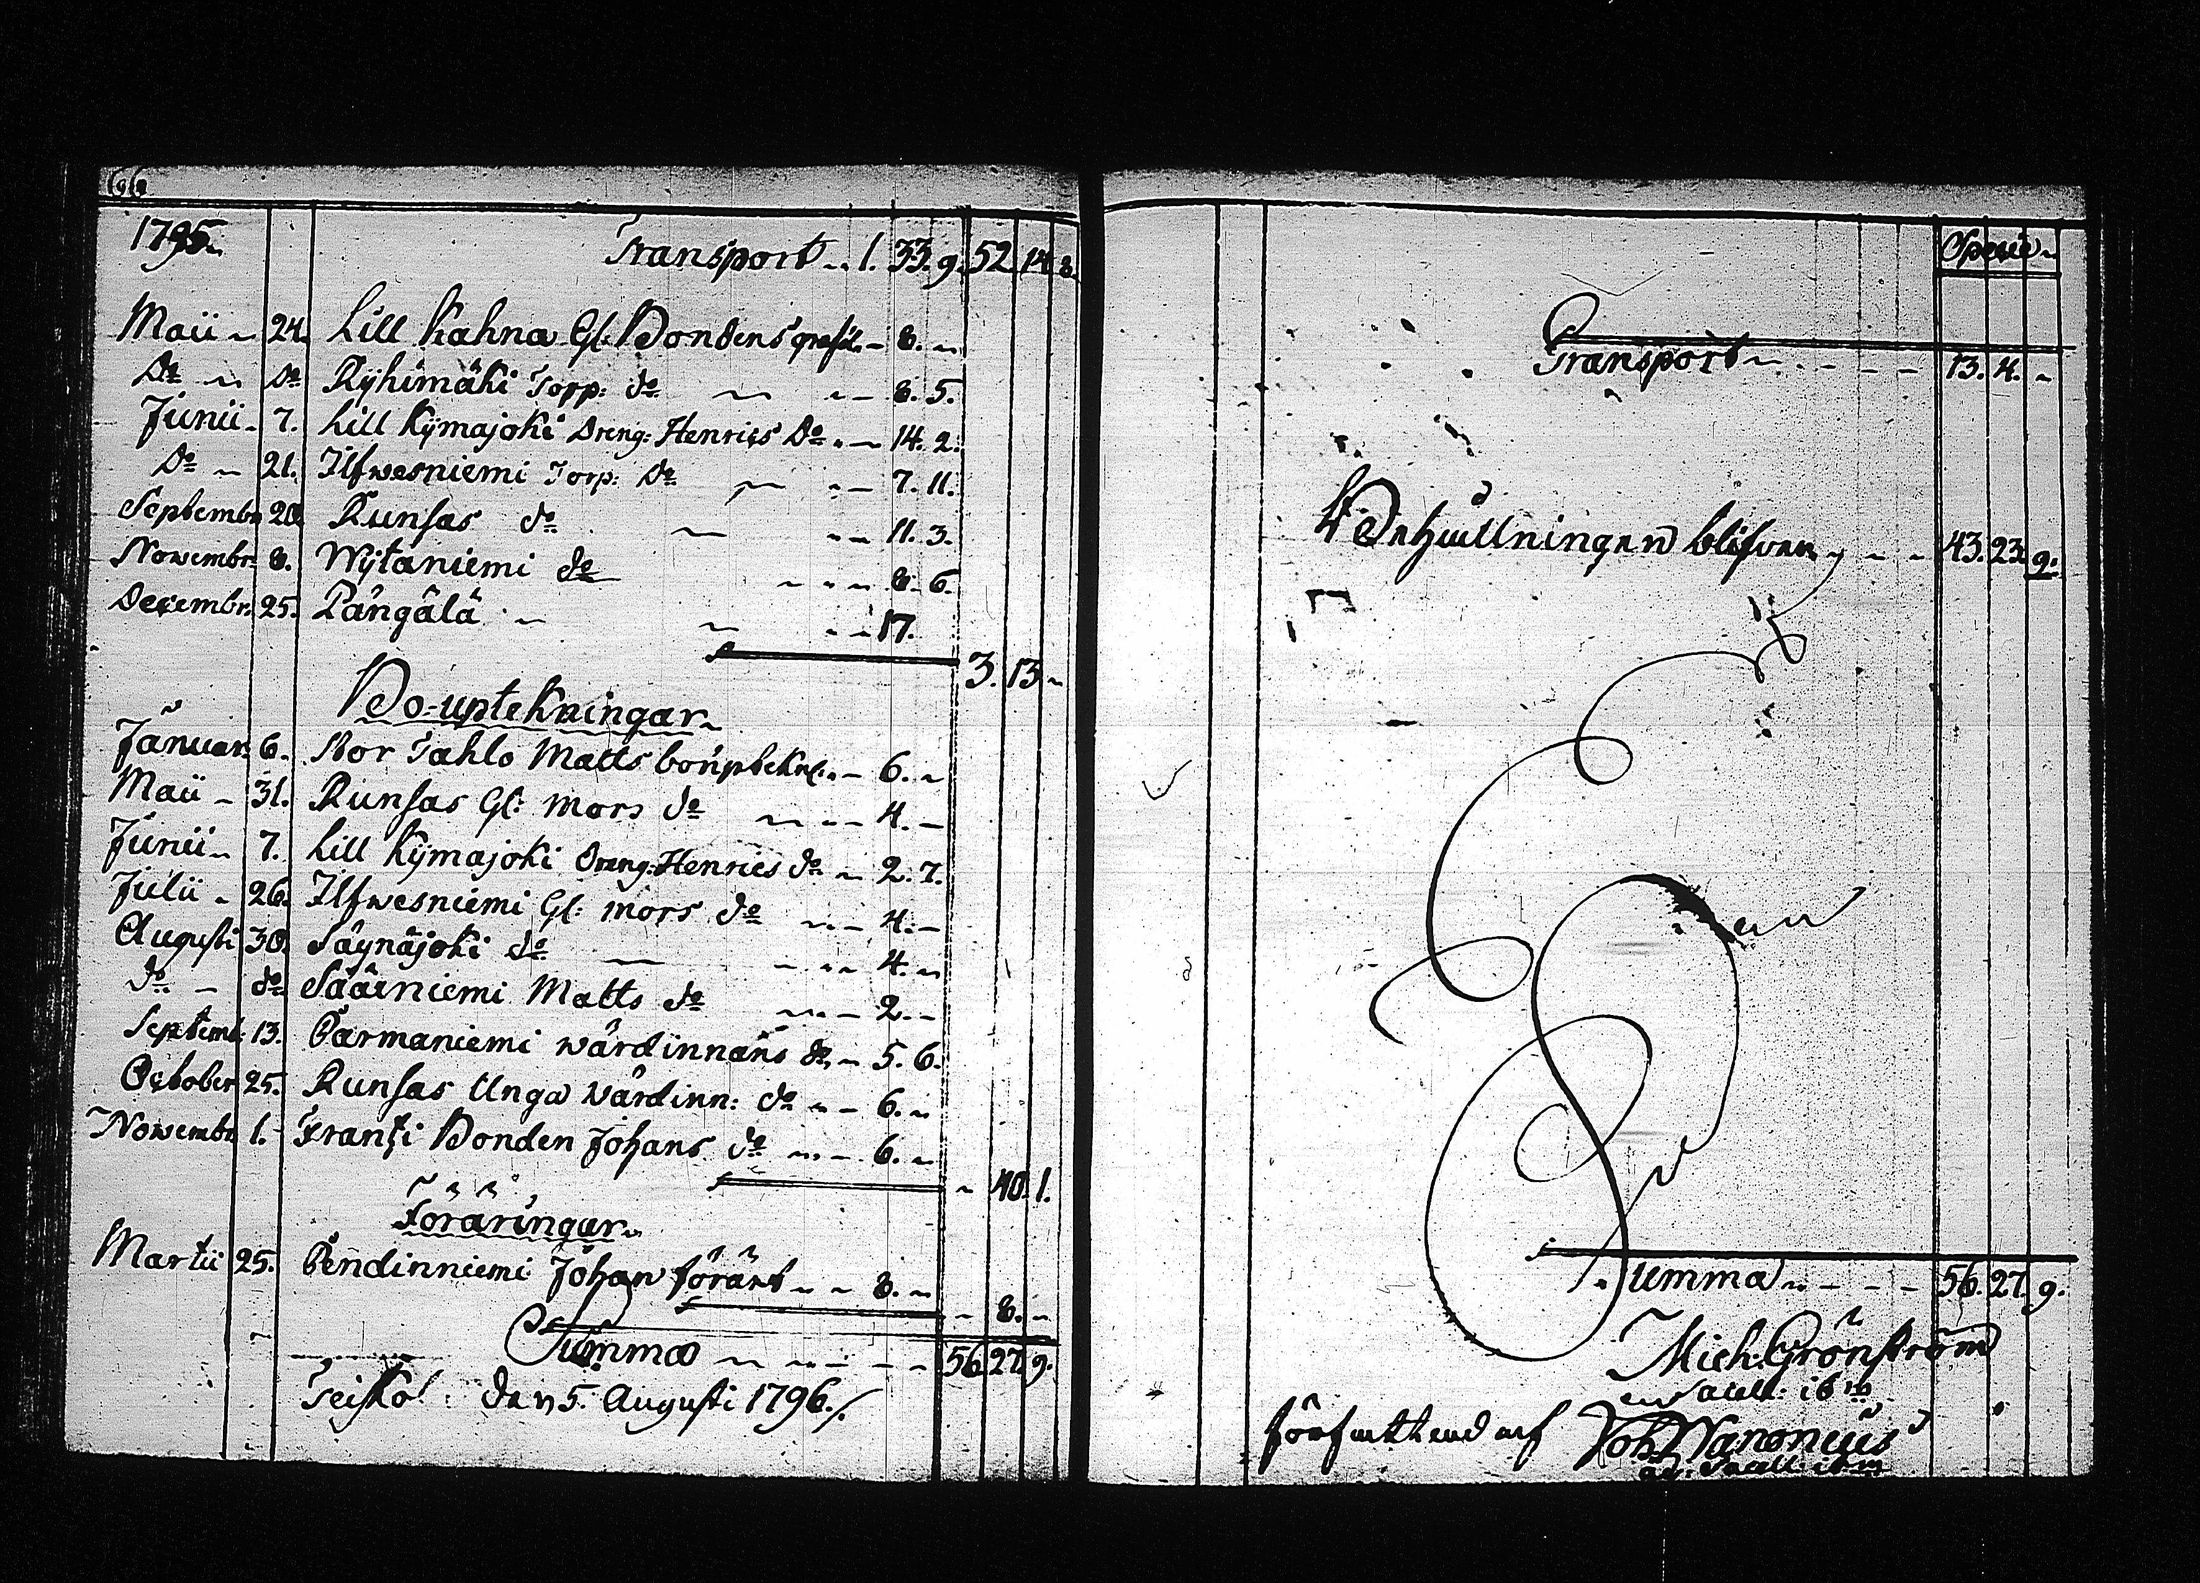 1795.
Transport .. 1. 33. 9. 52. 14. 8.
Maii 24. Lill Kahna Gl: Bondens - 8. "
Do " Do Ryhimäki Torp: do " " - 8. 5.
Junii - 7. Lill Kymajoki Dreng: Henrics Do " - 14. 2.
Do " 21. Ilfwesniemi Torp: Do " " - 7. 11.
Septembr 20. Runsas do " " - 11. 3.
Novembr. 8. Wytaniemi do " " " 8. 6.
Decembr. 25. Pångälä " " " - 17.
3. 13 "
Bo-uptekningar
Januar. 6. Stor Tahlo Matts boupteckn. - 6. "
Maii - 31. Runsas Gl: mors do " " - 4. -
Junii 7. Lill Kymajoki Dreng: Henrics do " 2. 7.
Julii - 26. Ilfwesniemi Gl: mors do " - 4. -
Augusti 30. Säynäjoki do " " " 4. "
do - do Sääxniemi Matts do " - 2. -
Septemb: 13. Parmaniemi wärdinnans do - 5. 6.
October 25. Runsas Unga Wärdinn: do " - 6. "
Novembr 1. Frantzi Bonden Johans do " - 6. "
" 40. 1.
Föräringar
Martii 25. Pendinniemi Johan förärt - " 8. "
- 8. -
Summa " " - - 56. 27. 9.
Teisko den 5. Augusti 1796./.
Specie
Transport - - - - 13. 4. "
Behållningen blifver - - 43. 23. 9.
Summa - - - - 56. 27. 9.
Mich: Grönström
Sacell: ibm
författad af Joh: Wanonius
Sacell: ibm